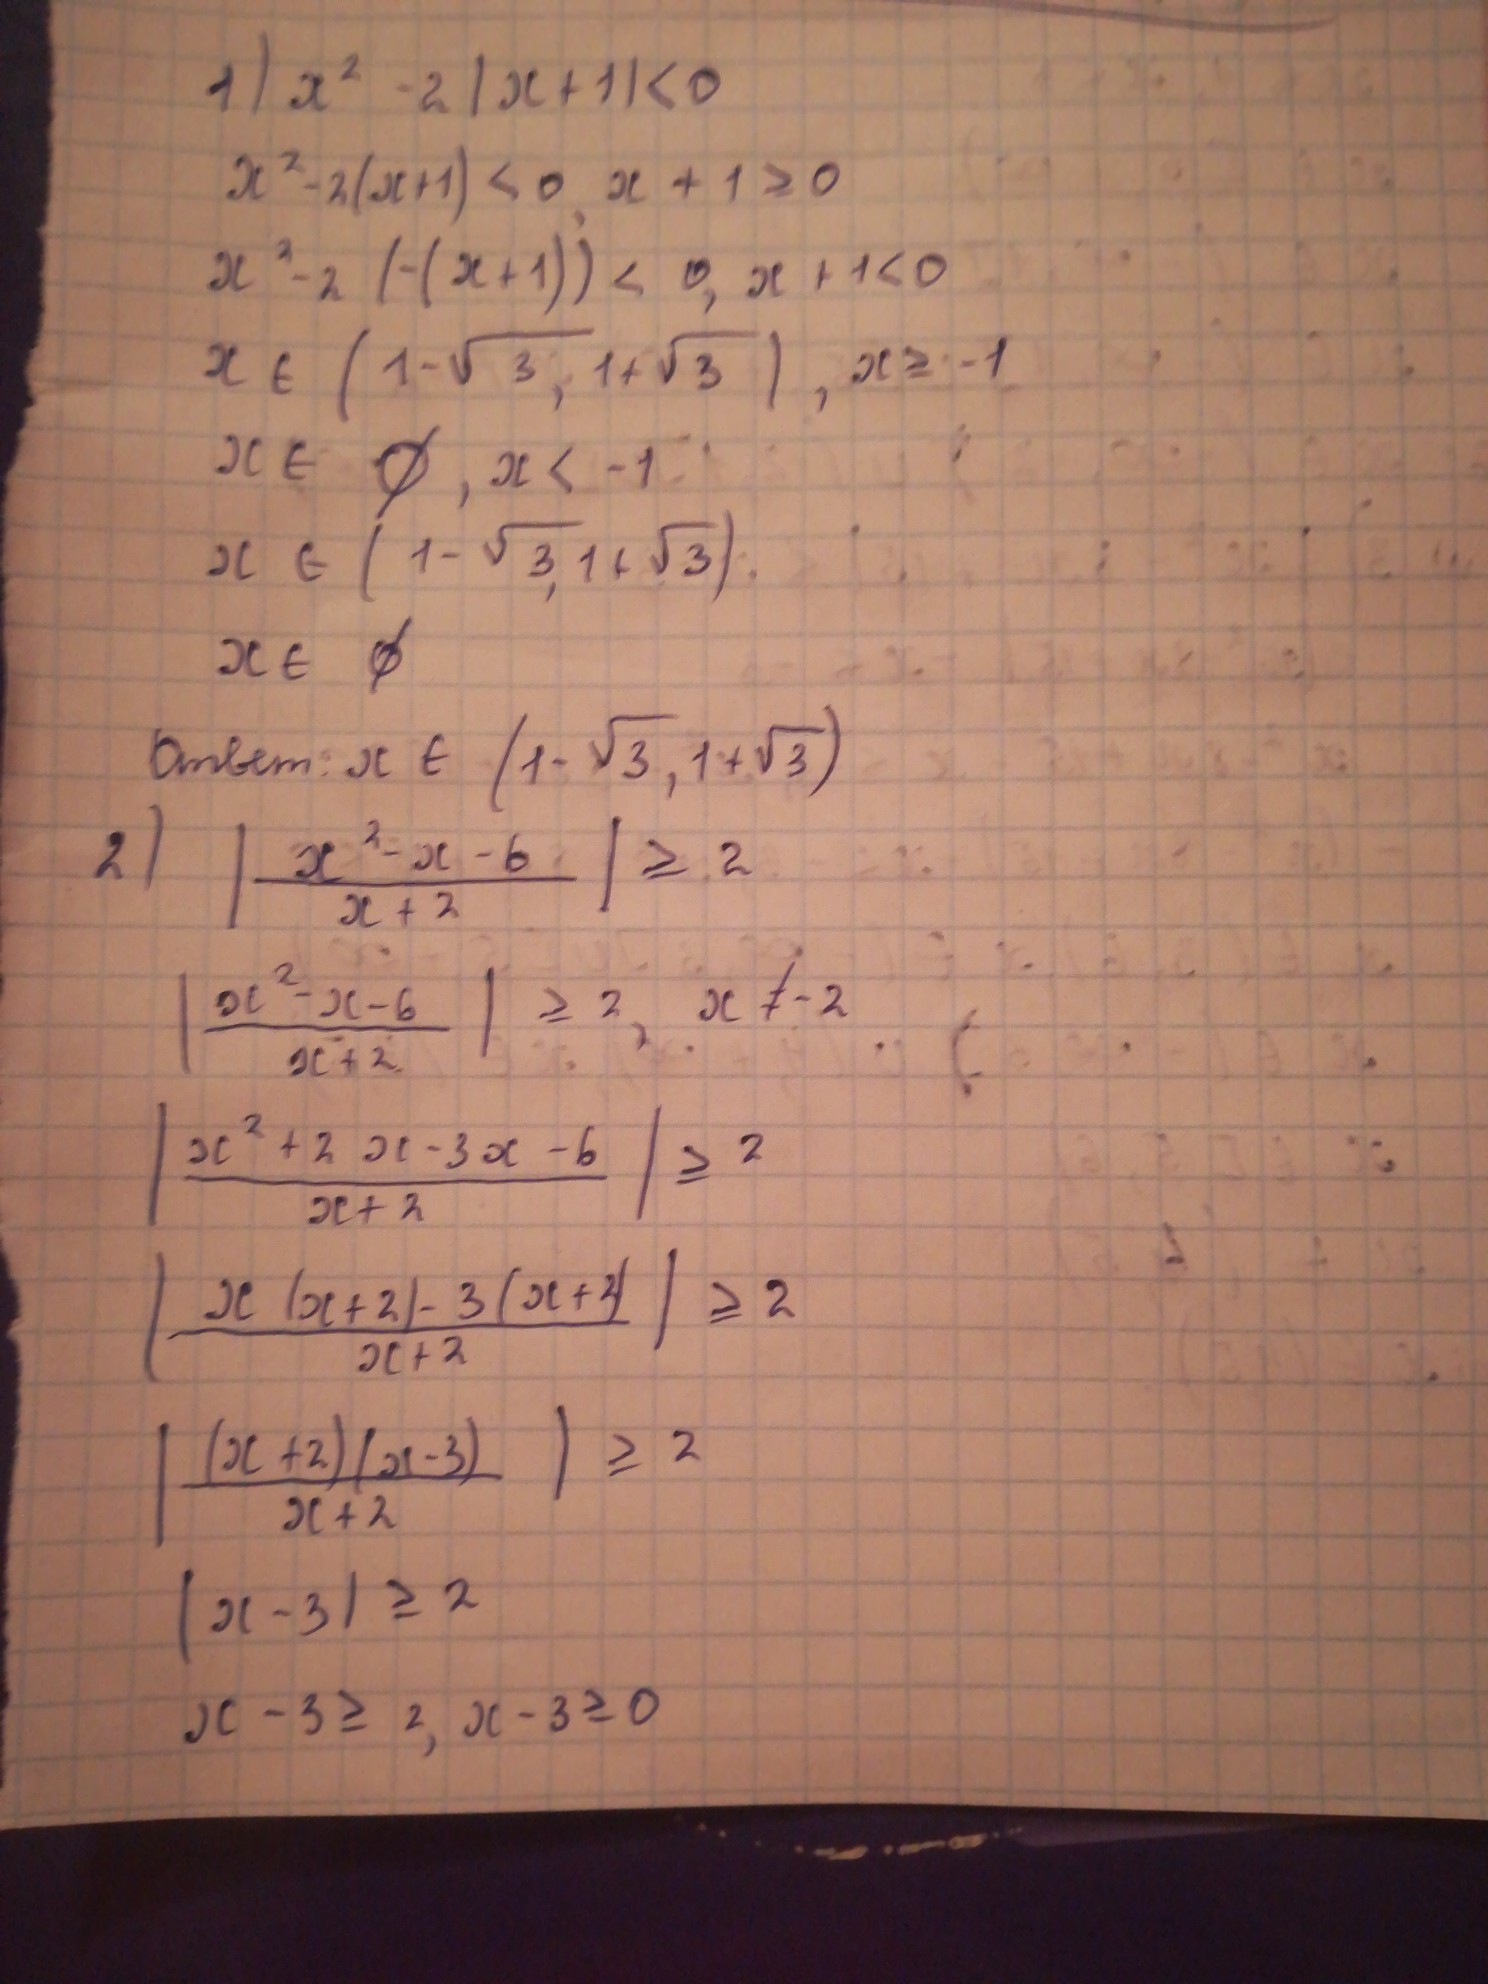 1) x² - 2|x+1|<0
x²-2(x+1) < 0, x + 1 ≥ 0
x²-2 (-(x+1)) < 0, x + 1<0
x ∈ (1-√3, 1+√3), x ≥ -1
x ∈ ∅, x < -1
x ∈ (1-√3, 1+√3)
x ∈ ∅
Ответ: x ∈ (1-√3, 1+√3)
2) |(x²-x-6)/(x+2)| ≥ 2
|(x²-x-6)/(x+2)| ≥ 2, x ≠ -2
|(x²+2x-3x-6)/(x+2)| ≥ 2
|(x(x+2)-3(x+2))/(x+2)| ≥ 2
|((x+2)(x-3))/(x+2)| ≥ 2
|x-3| ≥ 2
x-3 ≥ 2, x-3 ≥ 0